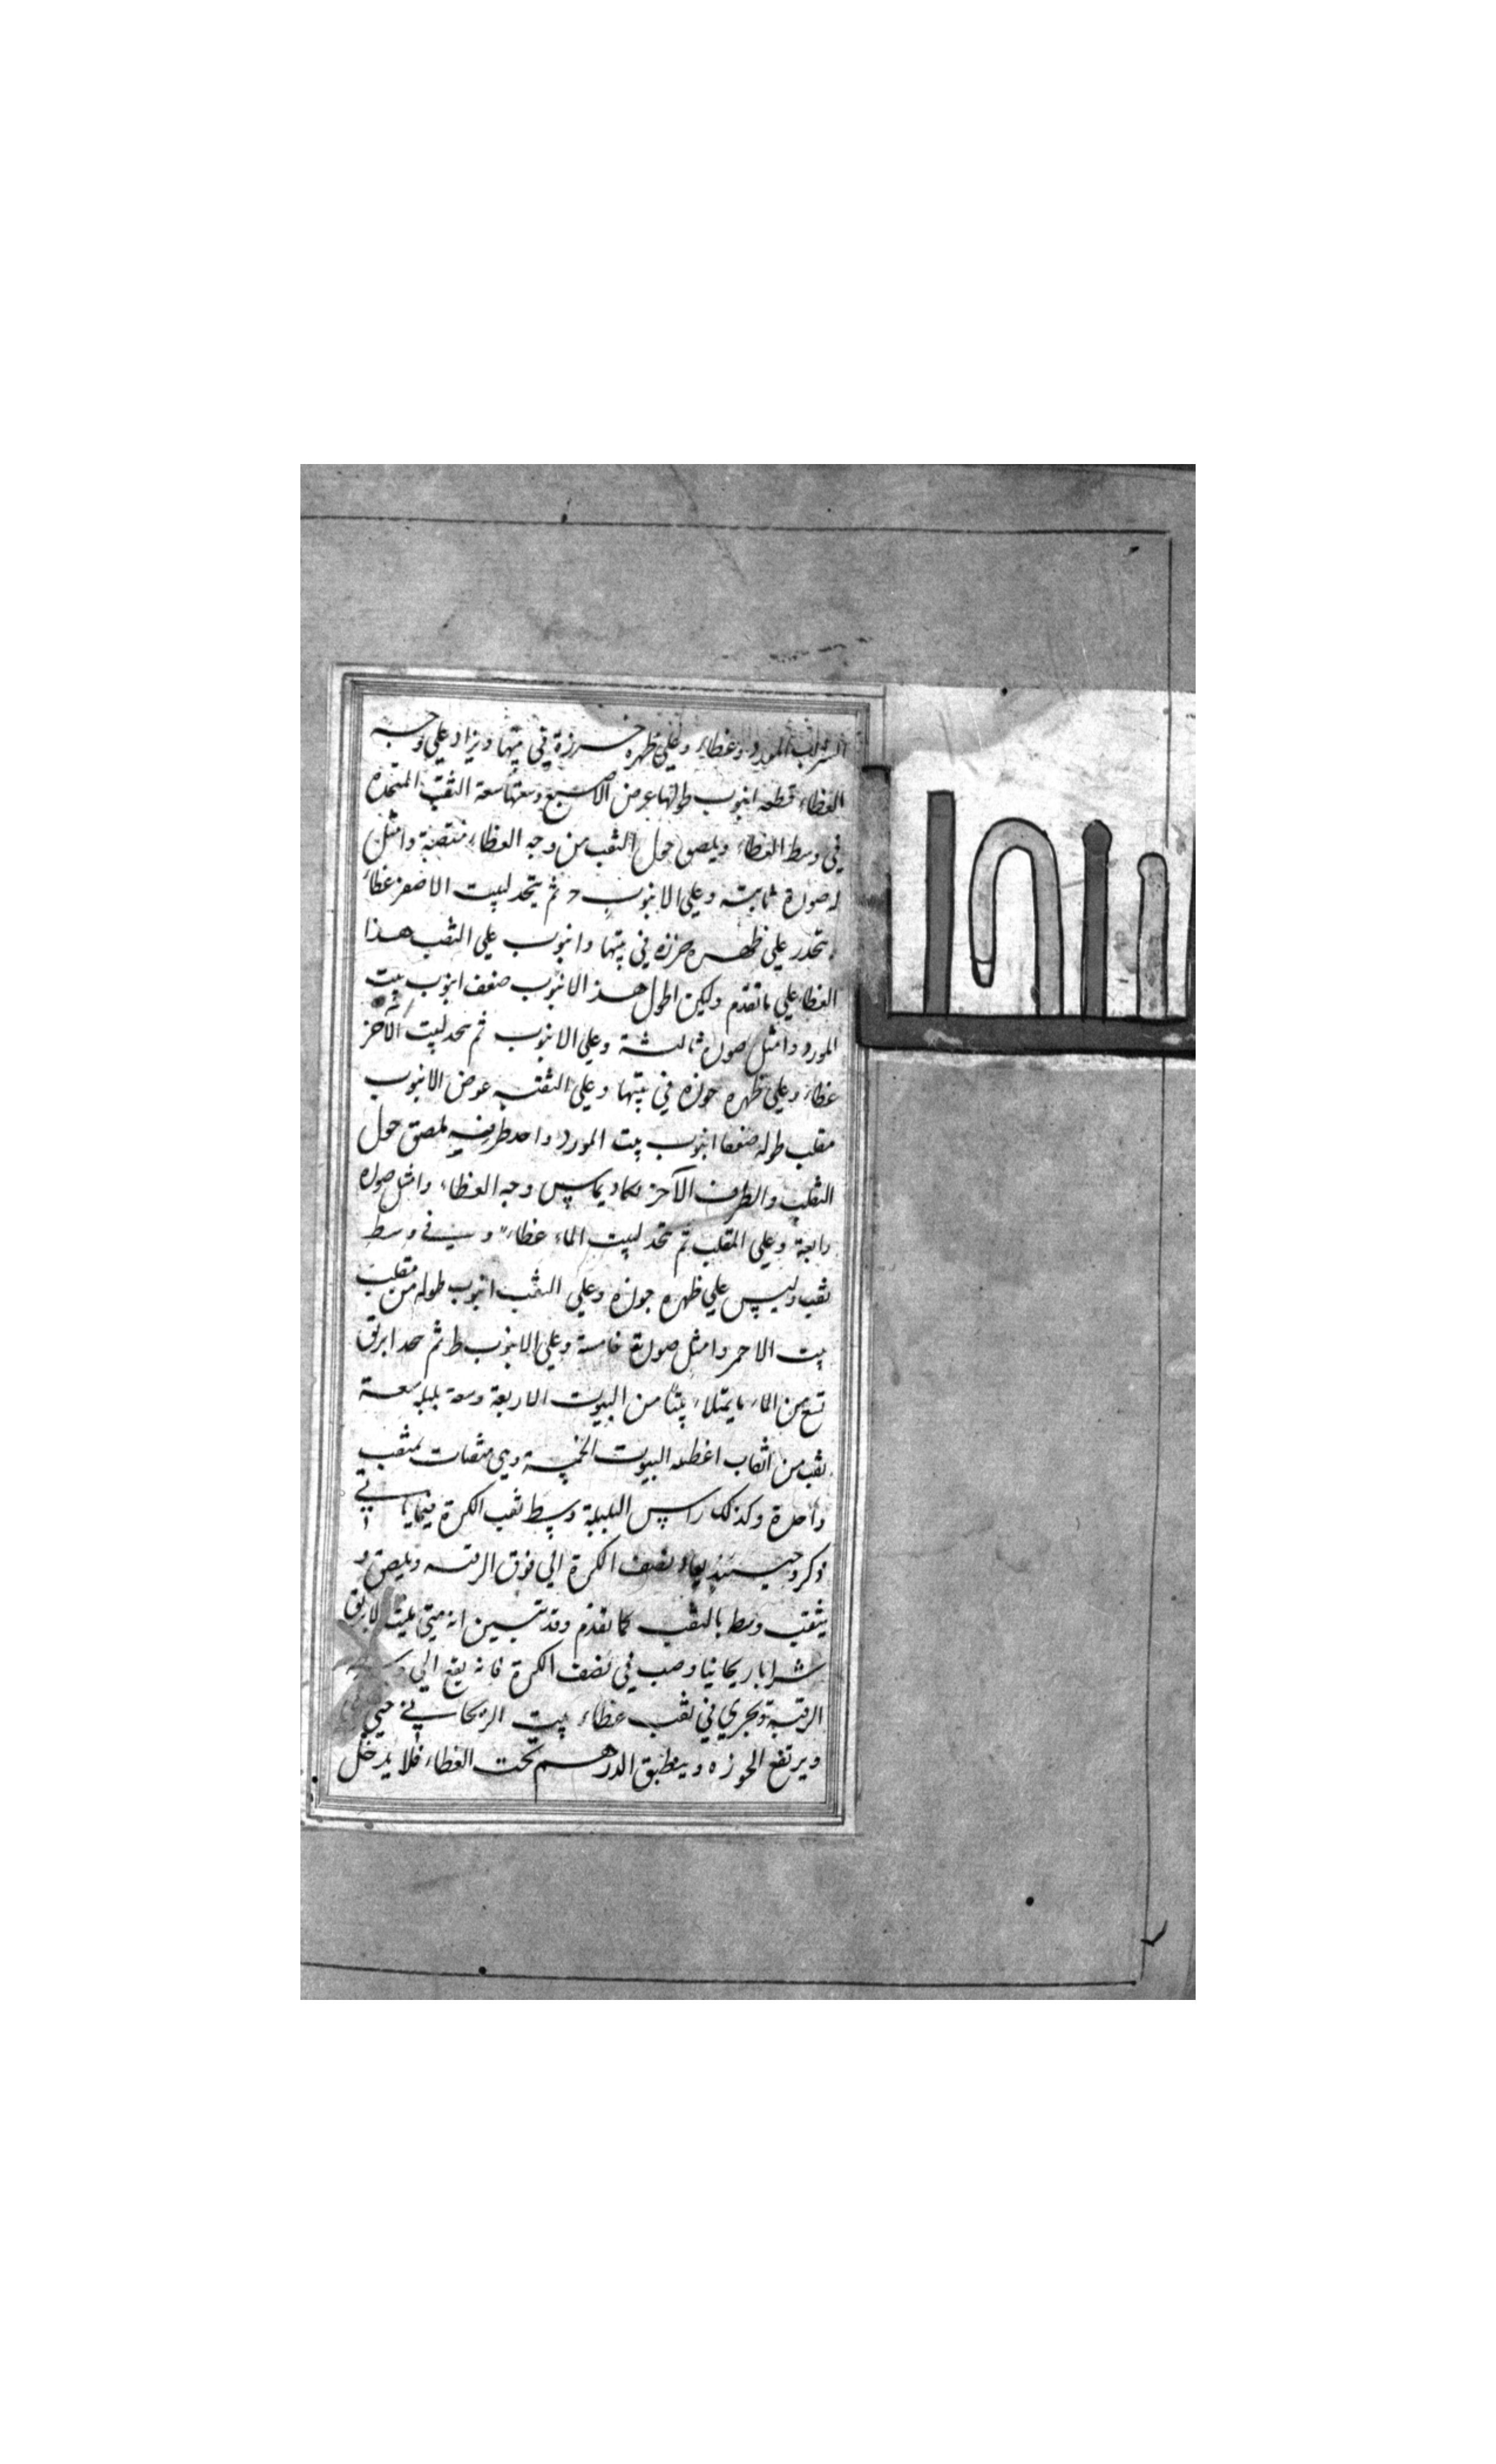 الشراب المورد وغطاء وعلى ظهره خرزة في بيتها ويزاد على وجه
الغطاء قطعه انبوب طولها عرض الاصبع وسعتها سعة الثقب المتخذه
في وسط الغطاء ويلصق حول الثقب من وجه الغطاء منتصبة وامثل
له صورة ثانية وعلى الانبوب ح ثم يتخذ لبيت الاصفر غطاء
يتخذ على ظهره خرزة في بيتها وانبوب على الثقب هذا
الغطاء على ما تقدم وليكن اطول هذا الانبوب ضعف انبوب بيت
المورد وامثل صورة ثالثة وعلى الانبوب ثم يتخذ لبيت الاحمر
غطاء وعلى ظهره جوزه في بيتها وعلى الثقب عوض الانبوب
مقلب طوله ضعفا انبوب بيت المورد واحد طرفيه يلصق حول
الثقب والطرف الآخر يكاد يماس وجه الغطاء وامثل صورة
رابعة وعلى المقلب ثم يتخذ لبيت الماء غطاء وفي وسط
ثقب وليس على ظهره جوزه وعلى الثقب انبوب طوله من مقلب
بيت الاحمر وامثل صورة خامسة وعلى الانبوب ط ثم يتخذ ابريق
تسع من الماء ما يمتلاء بيتا من البيوت الاربعة وسعة بلبله سعة
ثقب من اثقاب اغطيه البيوت الخمسة وهي مثقبات بمثقب
واحدة وكذلك راس البلبلة وسط ثقب الكرة فيما ياتي
ذكره وحينئذ يعاد نصف الكرة الى فوق الرقبه ويلصق و
يثقب وسط بالثقب كما تقدم وقد تبين انه متى مليت الابريق
شرابا ريحانيا وصب في نصف الكرة فانه يقع الى
الرقبة ويجري في ثقب غطاء بيت الريحاني حتى
ويرتفع الجوزه وينطبق الدرهم تحت الغطاء فلا يدخل